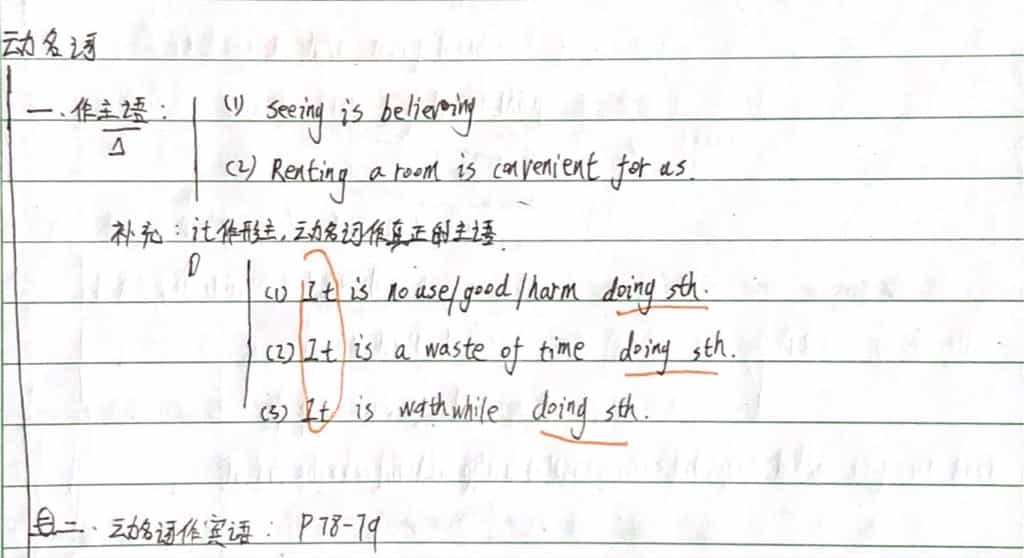 动名词
一. 作主语: (1) seeing is believing
(2) Renting a room is convenient for us.
补充: it作形主, 动名词作真正的主语.
(1) It is no use/good/harm doing sth.
(2) It is a waste of time doing sth.
(3) It is wathwhile doing sth.
二. 动名词作宾语: P78-79